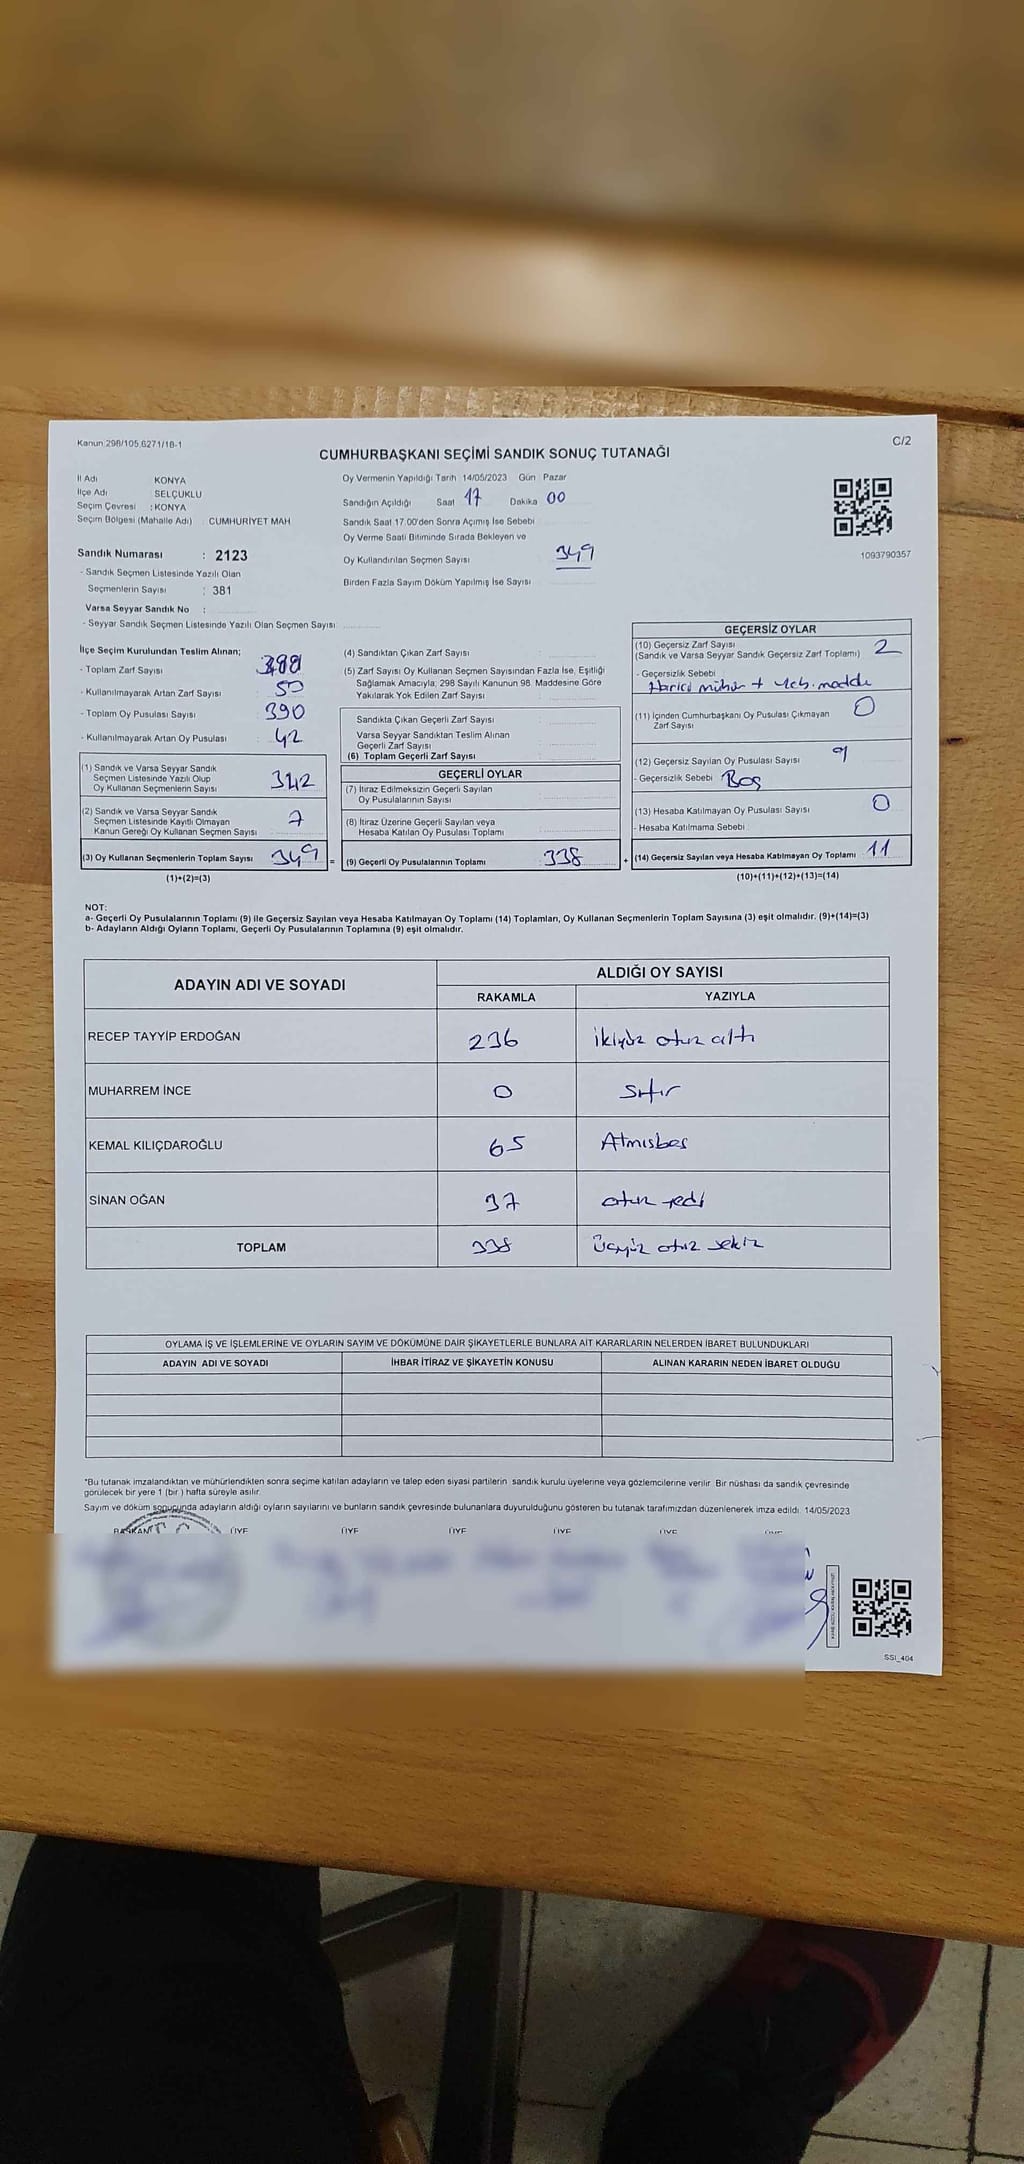 Kanun:298/105,6271/18-1
C/2
CUMHURBAŞKANI SEÇİMİ SANDIK SONUÇ TUTANAĞI
İl Adı KONYA
İlçe Adı SELÇUKLU
Seçim Çevresi : KONYA
Seçim Bölgesi (Mahalle Adı) : CUMHURİYET MAH
Sandık Numarası : 2123
- Sandık Seçmen Listesinde Yazılı Olan
Seçmenlerin Sayısı : 381
Varsa Seyyar Sandık No :
- Seyyar Sandık Seçmen Listesinde Yazılı Olan Seçmen Sayısı
Oy Vermenin Yapıldığı Tarih 14/05/2023 Gün Pazar
Sandığın Açıldığı Saat 17 Dakika 00
Sandık Saat 17.00'den Sonra Açımış İse Sebebi
Oy Verme Saati Bitiminde Sırada Bekleyen ve
Oy Kullandırılan Seçmen Sayısı 349
Birden Fazla Sayım Döküm Yapılmış İse Sayısı
1093790357
İlçe Seçim Kurulundan Teslim Alınan;
- Toplam Zarf Sayısı
- Kullanılmayarak Artan Zarf Sayısı 50
- Toplam Oy Pusulası Sayısı 390
- Kullanılmayarak Artan Oy Pusulası 42
(1) Sandık ve Varsa Seyyar Sandık
Seçmen Listesinde Yazılı Olup
Oy Kullanan Seçmenlerin Sayısı 342
(2) Sandık ve Varsa Seyyar Sandık
Seçmen Listesinde Kayıtlı Olmayan
Kanun Gereği Oy Kullanan Seçmen Sayısı 7
(3) Oy Kullanan Seçmenlerin Toplam Sayısı 349 =
(1)+(2)=(3)
(4) Sandıktan Çıkan Zarf Sayısı
(5) Zarf Sayısı Oy Kullanan Seçmen Sayısından Fazla İse, Eşitliği
Sağlamak Amacıyla, 298 Sayılı Kanunun 98. Maddesine Göre
Yakılarak Yok Edilen Zarf Sayısı
Sandıkta Çıkan Geçerli Zarf Sayısı
Varsa Seyyar Sandıktan Teslim Alınan
Geçerli Zarf Sayısı
(6) Toplam Geçerli Zarf Sayısı
GEÇERLİ OYLAR
(7) İtiraz Edilmeksizin Geçerli Sayılan
Oy Pusulalarının Sayısı
(8) İtiraz Üzerine Geçerli Sayılan veya
Hesaba Katılan Oy Pusulası Toplamı
(9) Geçerli Oy Pusulalarının Toplamı 338 +
GEÇERSİZ OYLAR
(10) Geçersiz Zarf Sayısı 2
(Sandık ve Varsa Seyyar Sandık Geçersiz Zarf Toplamı)
- Geçersizlik Sebebi
Harici mühür + madde
(11) İçinden Cumhurbaşkanı Oy Pusulası Çıkmayan 0
Zarf Sayısı
(12) Geçersiz Sayılan Oy Pusulası Sayısı 9
- Geçersizlik Sebebi Boş
(13) Hesaba Katılmayan Oy Pusulası Sayısı 0
- Hesaba Katılmama Sebebi
(14) Geçersiz Sayılan veya Hesaba Katılmayan Oy Toplamı 11
(10)+(11)+(12)+(13)=(14)
NOT:
a- Geçerli Oy Pusulalarının Toplamı (9) ile Geçersiz Sayılan veya Hesaba Katılmayan Oy Toplamı (14) Toplamları, Oy Kullanan Seçmenlerin Toplam Sayısına (3) eşit olmalıdır. (9)+(14)=(3)
b- Adayların Aldığı Oyların Toplamı, Geçerli Oy Pusulalarının Toplamına (9) eşit olmalıdır.
ADAYIN ADI VE SOYADI ALDIĞI OY SAYISI
RAKAMLA YAZIYLA
RECEP TAYYİP ERDOĞAN 236 ikiyüz otuz altı
MUHARREM İNCE 0 sıfır
KEMAL KILIÇDAROĞLU 65 Atmışbeş
SİNAN OĞAN 37 otuz yedi
TOPLAM 338 Üçyüz otuz sekiz
OYLAMA İŞ VE İŞLEMLERİNE VE OYLARIN SAYIM VE DÖKÜMÜNE DAİR ŞİKAYETLERLE BUNLARA AİT KARARLARIN NELERDEN İBARET BULUNDUKLARI
ADAYIN ADI VE SOYADI İHBAR İTİRAZ VE ŞİKAYETİN KONUSU ALINAN KARARIN NEDEN İBARET OLDUĞU
*Bu tutanak imzalandıktan ve mühürlendikten sonra seçime katılan adayların ve talep eden siyasi partilerin sandık kurulu üyelerine veya gözlemcilerine verilir. Bir nüshası da sandık çevresinde
görülecek bir yere 1 (bir ) hafta süreyle asılır.
Sayım ve döküm sonucunda adayların aldığı oyların sayılarını ve bunların sandık çevresinde bulunanlara duyurulduğunu gösteren bu tutanak tarafımızdan düzenlenerek imza edildi. 14/05/2023
BAŞKAN ÜYE ÜYE ÜYE ÜYE ÜYE ÜYE
SSI_404